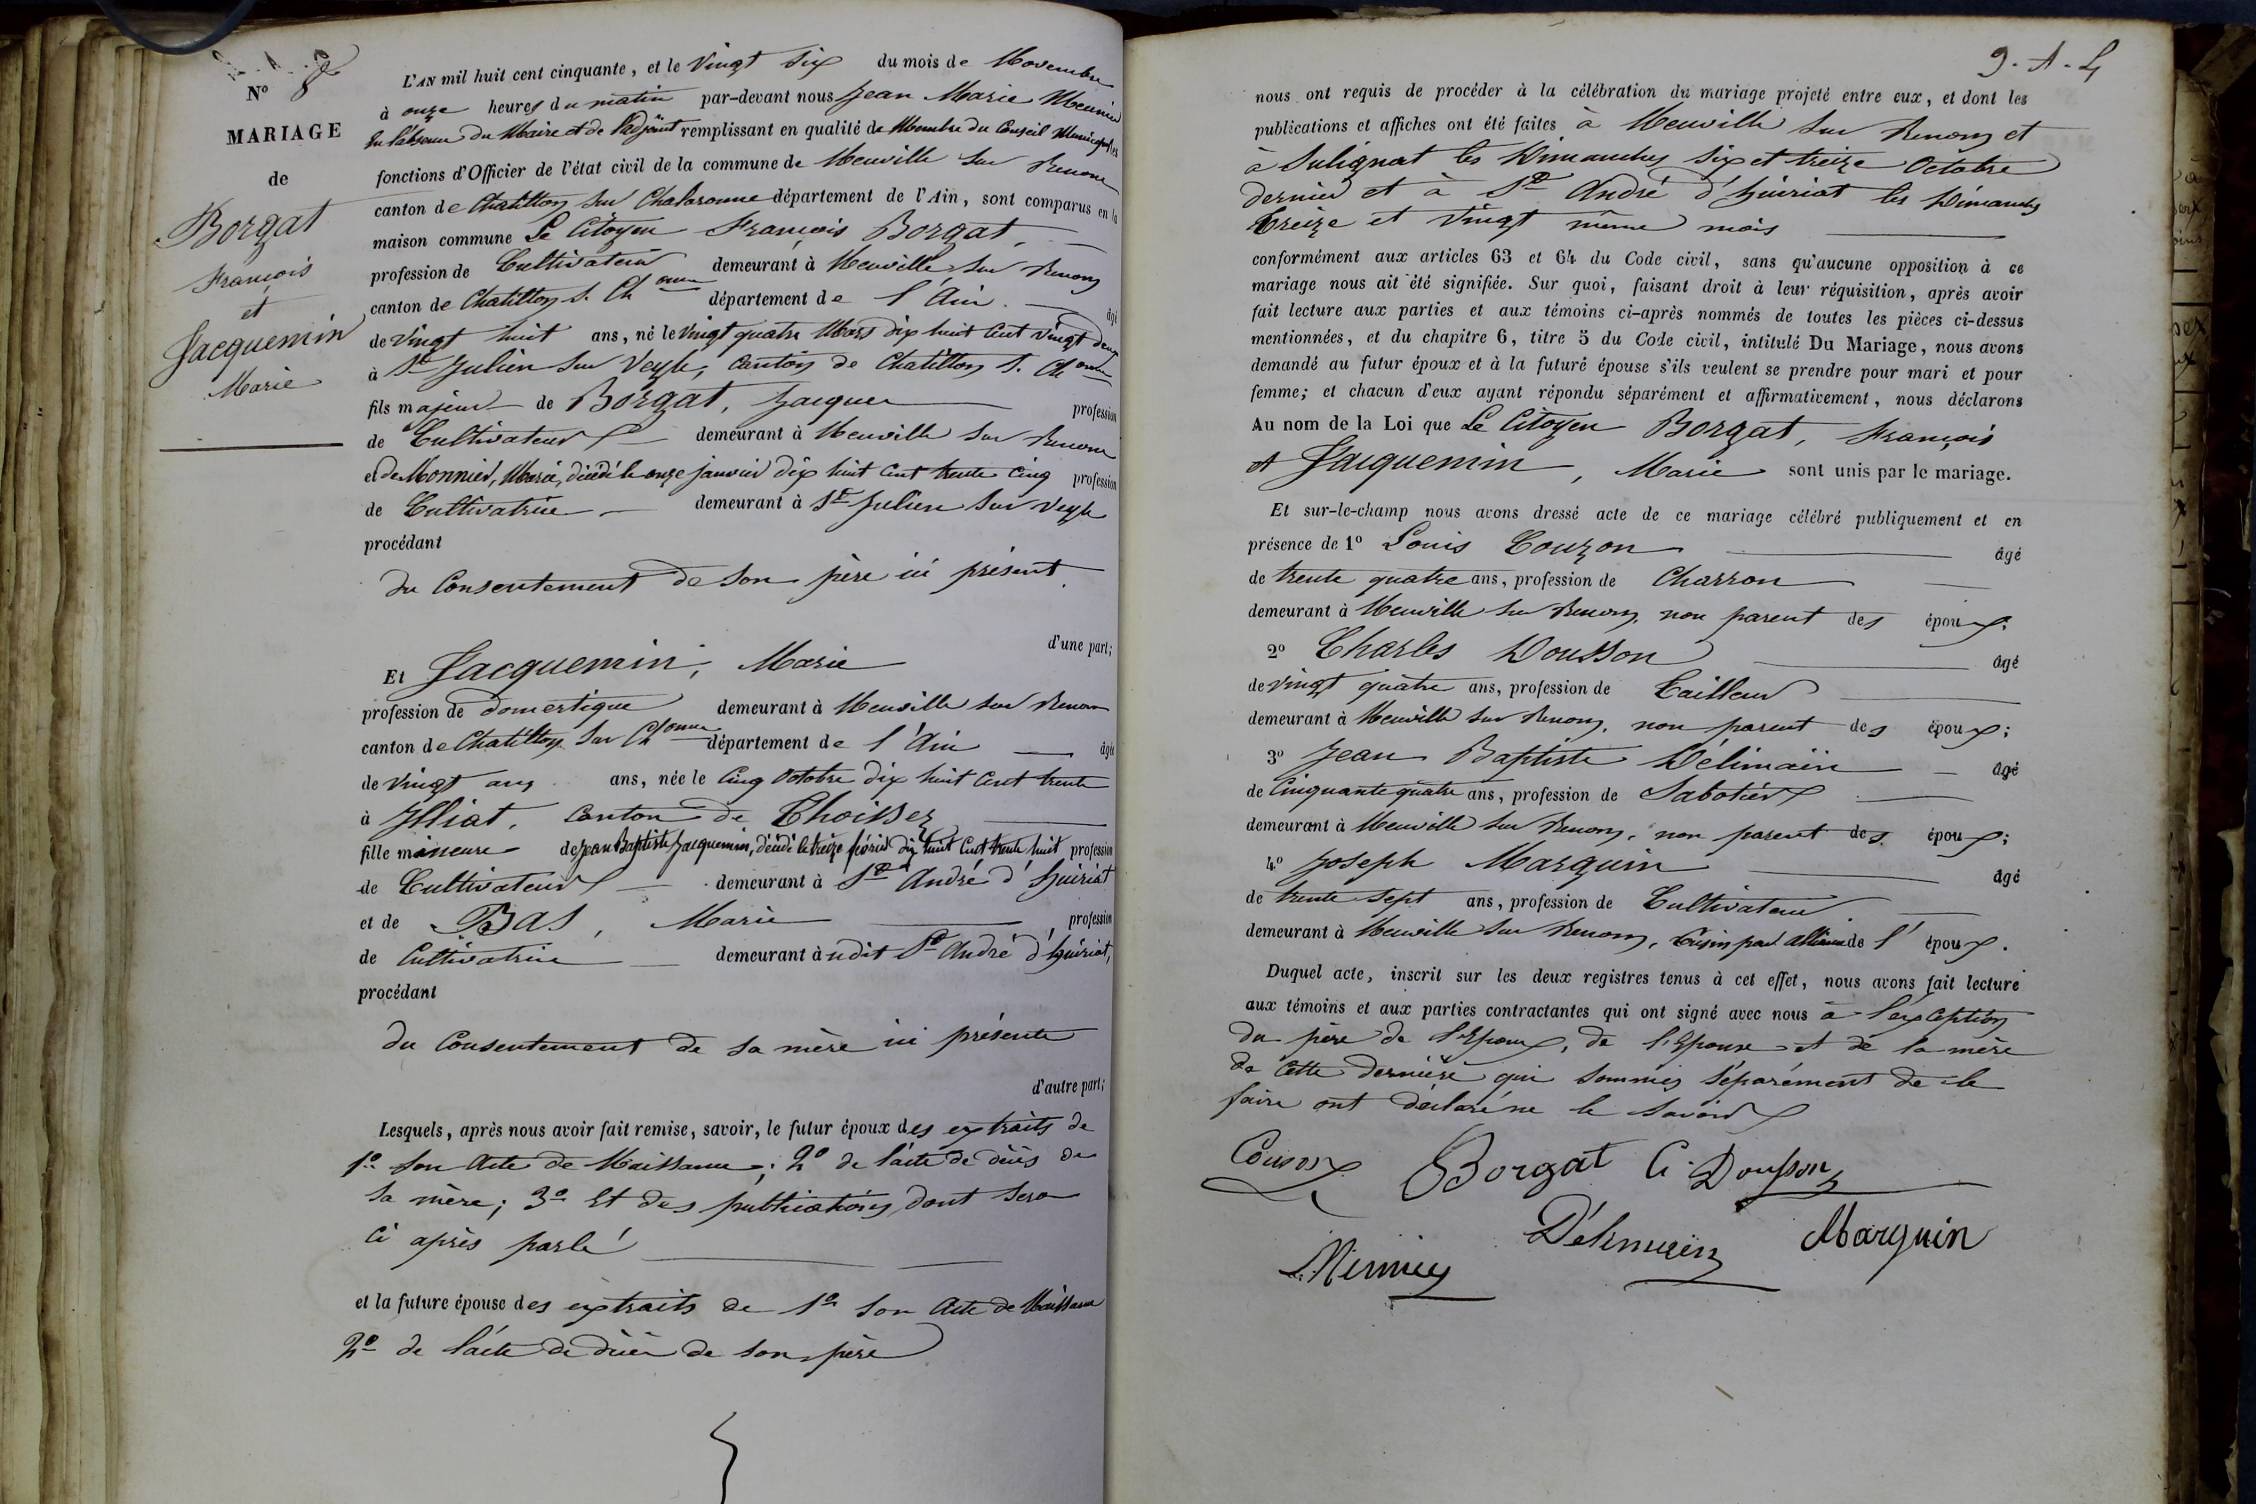 N° 8
MARIAGE
de
Borgat
François
et
Jacquemin
Marie
L'AN mil huit cent cinquante, et le Vingt Six du mois de Novembre
à onze heures du matin par-devant nous Jean Marie Meunier
En l'absence du Maire et de l'adjoint remplissant en qualité de Membre du Conseil Municipal les
fonctions d'Officier de l'état civil de la commune de Neuville sur Renom
canton de Chatillon sur Chalaronne département de l'Ain, sont comparus en la
maison commune Le Citoyen François Borgat,
profession de Cultivateur demeurant à Neuville sur Renom
canton de Chatillon s. Ch onne département de l'Ain. âgé
de Vingt huit ans, né le Vingt quatre Mars dix huit Cent Vingt deux
à St Julien sur Veyle, Canton de Chatillon s. Ch onne
fils majeur de Borgat, Jacques profession
de Cultivateur demeurant à Neuville sur Renom
et de Monnier, Marie, décédé le onze janvier dix huit Cent trente Cinq profession
de Cultivatrice demeurant à St Julien sur Veyle
procédant
du Consentement de son père ici présent.
d'une part;
Et Jacquemin, Marie
profession de domestique demeurant à Neuville sur Renom
canton de Chatillon sur Ch onne département de l'Ain âgée
de Vingt ans ans, née le Cinq Octobre dix huit Cent trente
à Illiat, Canton de Thoissey
fille mineure de Jean Baptiste Jacquemin, décédé le treize février dix huit Cent trente huit profession
de Cultivateur demeurant à St André d'huiriat
et de Bas, Marie profession
de Cultivatrice demeurant audit St André d'huiriat,
procédant
du Consentement de sa mère ici présente
d'autre part;
Lesquels, après nous avoir fait remise, savoir, le futur époux des extraits de
1° son Acte de Naissance; 2° de l'acte de décès de
sa mère; 3° Et des publications dont sera
ci après parlé
et la future épouse des extraits de 1° son Acte de Naissance
2° de l'acte de décès de son père
9. A. L
nous ont requis de procéder à la célébration du mariage projeté entre eux, et dont les
publications et affiches ont été faites à Neuville sur Renom et
à Sulignat les Dimanches six et treize Octobre
dernier et à St André d'huiriat les Dimanches
treize et Vingt même mois
conformément aux articles 63 et 64 du Code civil, sans qu'aucune opposition à ce
mariage nous ait été signifiée. Sur quoi, faisant droit à leur réquisition, après avoir
fait lecture aux parties et aux témoins ci-après nommés de toutes les pièces ci-dessus
mentionnées, et du chapitre 6, titre 5 du Code civil, intitulé Du Mariage, nous avons
demandé au futur époux et à la future épouse s'ils veulent se prendre pour mari et pour
femme; et chacun d'eux ayant répondu séparément et affirmativement, nous déclarons
Au nom de la Loi que Le Citoyen Borgat, François
et Jacquemin, Marie sont unis par le mariage.
Et sur-le-champ nous avons dressé acte de ce mariage célébré publiquement et en
présence de 1° Louis Couzon âgé
de trente quatre ans, profession de Charron
demeurant à Neuville sur Renom, non parent des époux;
2° Charles Dousson âgé
de vingt quatre ans, profession de Tailleur
demeurant à Neuville sur Renom, non parent des époux;
3° Jean Baptiste Délimain âgé
de Cinquante quatre ans, profession de Sabotier
demeurant à Neuville sur Renom, non parent des époux;
4° Joseph Marguin âgé
de trente sept ans, profession de Cultivateur
demeurant à Neuville sur Renom, Cousin par alliance de l'époux.
Duquel acte, inscrit sur les deux registres tenus à cet effet, nous avons fait lecture
aux témoins et aux parties contractantes qui ont signé avec nous à l'exception
du père de l'Epoux, de l'Epouse et de la mère
de cette dernière qui sommés séparément de le
faire ont déclaré ne le savoir
Couson Borgat C. Dousson
Meunier Délimain Marguin